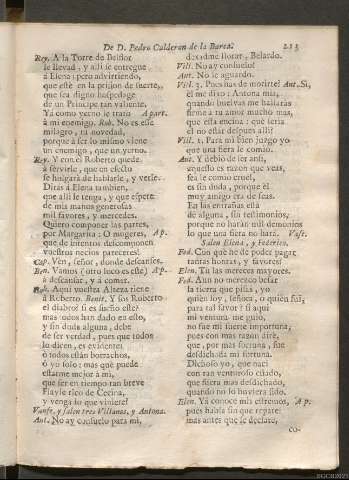 De D. Pedro Calderon de la Barca. 213
Rey. A la Torre de Belflor
le llevad, y allì se entregue
à Elena; pero advirtiendo,
que estè en la prision de suerte,
que sea digno hospedage
de un Principe tan valiente.
Yà como yerno le trato A part.
à mi enemigo. Rob. No es esse
milagro, ni novedad,
porque à ser lo mismo viene
un enemigo, que un yerno.
Rey. Y con èl Roberto quede
à servirle, que en efecto
se holgarà de hablarle, y verse.
Diràs à Elena tambien,
que allì le tenga, y que espere
de mis manos generosas
mil favores, y mercedes.
Quiero componer las partes,
por Margarita: O mugeres, Ap.
què de intentos descomponen
vuestros necios pareceres!
Cap. Vèn, señor, donde descanses.
Ben. Vamos (otro loco es este) Ap.
à descansar, y à comer.
Rob. Aquì vuestra Alteza tiene
à Roberto. Benit. Y sois Roberto
el diablo? si es sueño este?
mas todos han dado en esto,
y sin duda alguna, debe
de ser verdad, pues que todos
lo dicen, es evidente;
ò todos estàn borrachos,
ò yo solo: mas què puede
estarme mejor à mi,
que ser en tiempo tan breve
Frayle rico de Cecina,
y venga lo que viniere?
Vanse, y salen tres Villanos, y Antona.
Ant. No ay consuelo para mi,
dexadme llorar, Belardo.
Vill. No ay consuelo?
Ant. No le aguardo.
Vill. 3. Pues has de morirte? Ant. Sì,
èl me dixo: Antona mia,
quando buelvas me hallaràs
firme à tu amor mucho mas,
que esta encina: què seria
el no estàr despues allì?
Vill. 1. Para mi bien juzgo yo
que una fiera le comiò.
Ant. Y debiò de ser ansi,
aquesso es razon que veas,
fue le comiò cruel,
es sin duda, porque èl
muy amigo era de feas.
En las entrañas està
de alguna, sin testimonios,
porque no haràn mil demonios
lo que una fiera no harà. Vase.
Salen Elena, y Federico.
Fed. Con què he de poder pagar
tantas honras, y favores?
Elen. Tù las mereces mayores.
Fed. Aun no merezco besar
la tierra que pisas, yo
quièn soy, señora, ò quièn fuì,
para tal favor? si aquì
mi ventura me guiò,
no fue mi suerte importuna,
pues con mas razon dirè,
que, por mas fortuna, fue
desdichada mi fortuna.
Dichoso yo, que nacì
con tan venturoso estado,
que fuera mas desdichado,
quando no lo huviera sido.
Elen. Yà conoce mis estremos, Ap.
pues habla sin que repare:
mas antes que se declare,
co-